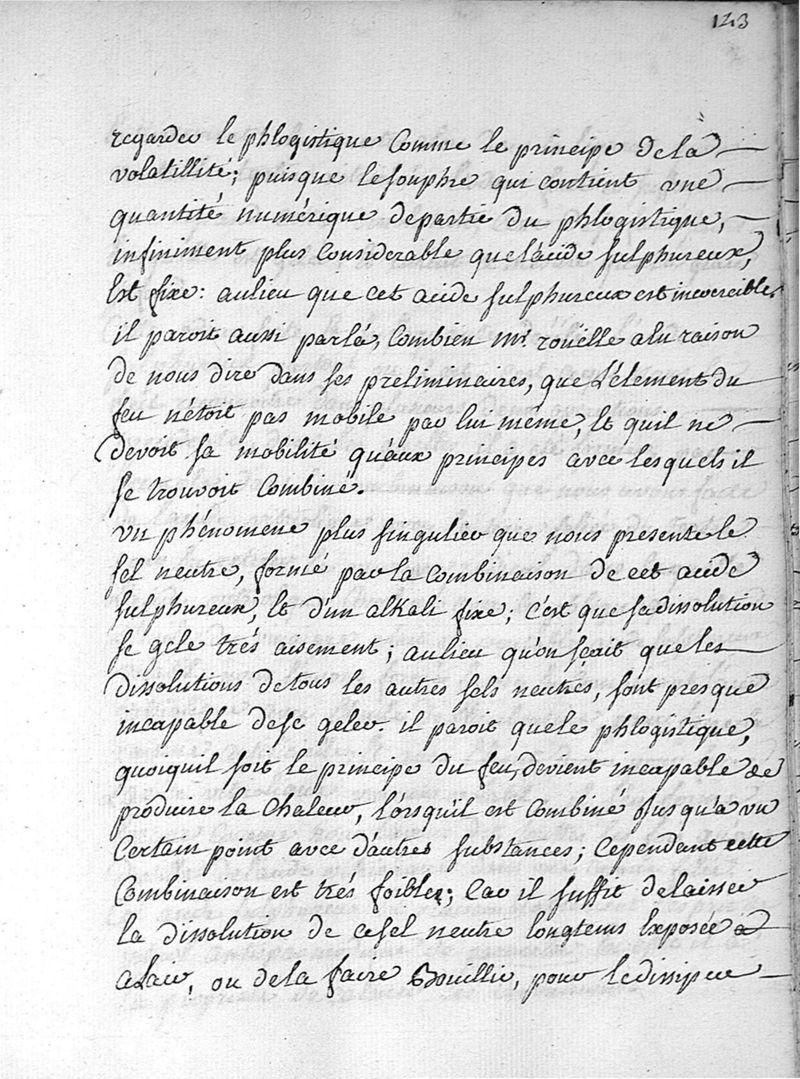 143
regarder le phlogistique Comme le principe de la
volatillité; puisque le souphre qui contient une
quantité numérique de partie du phlogistique,
infiniment plus Considerable que l'acide sulphureux,
Est fixe: aulieu que cet acide sulphureux est incoercible,
il paroit aussi par là, Combien mr. roüelle a lu raison
de nous dire dans ses preliminaires, que L'élement du
feu n'étoit pas mobile par lui même, Et quil ne
devoit sa mobilité qu'aux principes avec lesquels il
se trouvoit Combiné.
un phénomene plus singulier que nous presente le
sel neutre, formé par la Combinaison de cet acide
sulphureux, Et d'un alkali fixe; c'est que sa dissolution
se gele trés aisement; aulieu qu'on sçait que les
dissolutions de tous les autres sels neutres, sont presque
incapable de se geler. il paroit que le phlogistique,
quoiquil soit le principe du feu, devient incapable de
produire la Chaleur, lórsqu'il est Combiné jusqu'a un
Certain point avec d'autres substances; Cependant cette
Combinaison est trés foible; Car il suffit de laisser
la dissolution de ce sel neutre longtems Exposée a
a Lair, ou de la faire Bouillir, pour le dissiper